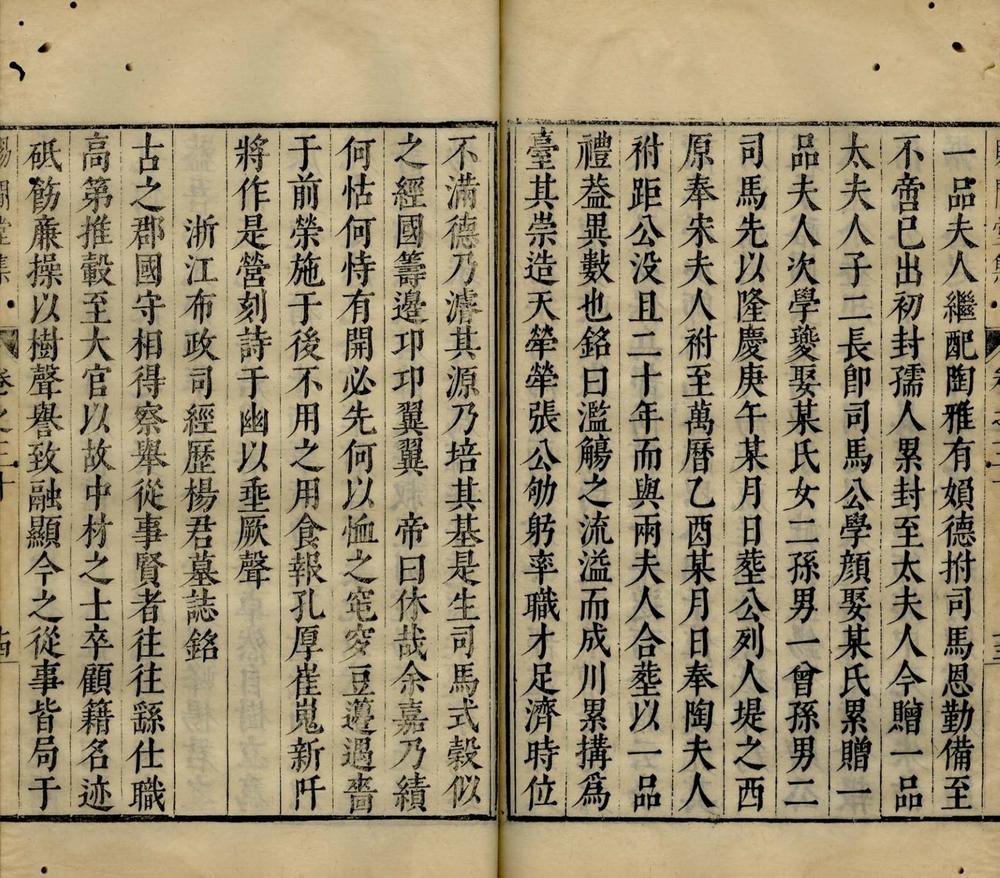 一品夫人繼配陶雅有媍德拊司馬恩勤備至
不啻已出初封孺人累封至太夫人今贈一品
太夫人子二長卽司馬公學顔娶某氏累贈一
品夫人次學夔娶某氏女二孫男一曾孫男二
司馬先以隆慶庚午某月日塟公列人堤之西
原奉宋夫人祔至萬曆乙酉某月日奉陶夫人
祔距公没且二十年而與兩夫人合塟以一品
禮葢異數也銘曰濫觴之流溢而成川累搆爲
臺其崇造天犖犖張公劬躬率職才足濟時位
不滿德乃濬其源乃培其基是生司馬式穀似
之經國籌邊卭卭翼翼 帝曰休哉余嘉乃績
何怙何恃有開必先何以恤之窀穸豆籩遏嗇
于前榮施于後不用之用食報孔厚崔嵬新阡
將作是營刻詩于幽以埀厥聲
浙江布政司經歷楊君墓誌銘
古之郡國守相得察舉從事賢者往往繇仕職
高第推轂至大官以故中材之士卒顧籍名迹
砥飭亷操以樹聲譽致融顯今之從事皆局于
卷之三十